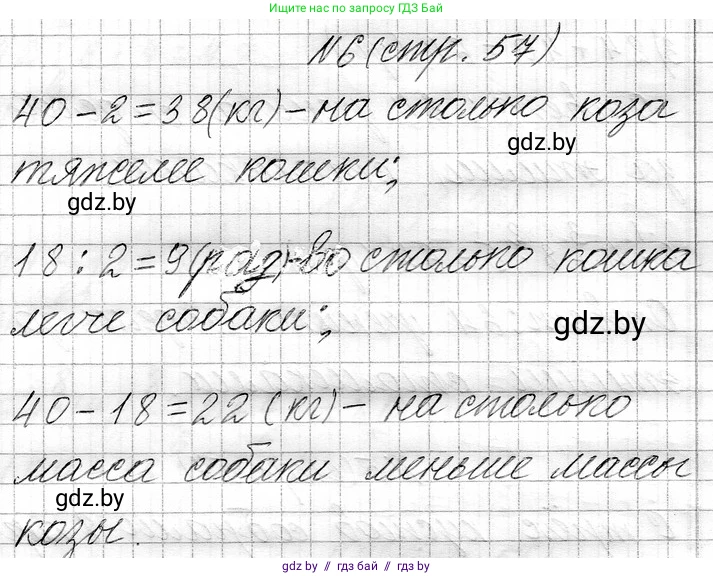 Ищите нас по запросу ГДЗ Бай
№6 (стр. 57)
40 - 2 = 38 (кг) - на столько коза
gdz.by
тяжелее кошки;
gdz.by
18 : 2 = 9 (раз) - во столько кошка
легче собаки;
gdz.by
40 - 18 = 22 (кг) - на столько
масса собаки меньше массы
gdz.by
козы.
gdz.by // гдз бай // gdz.by